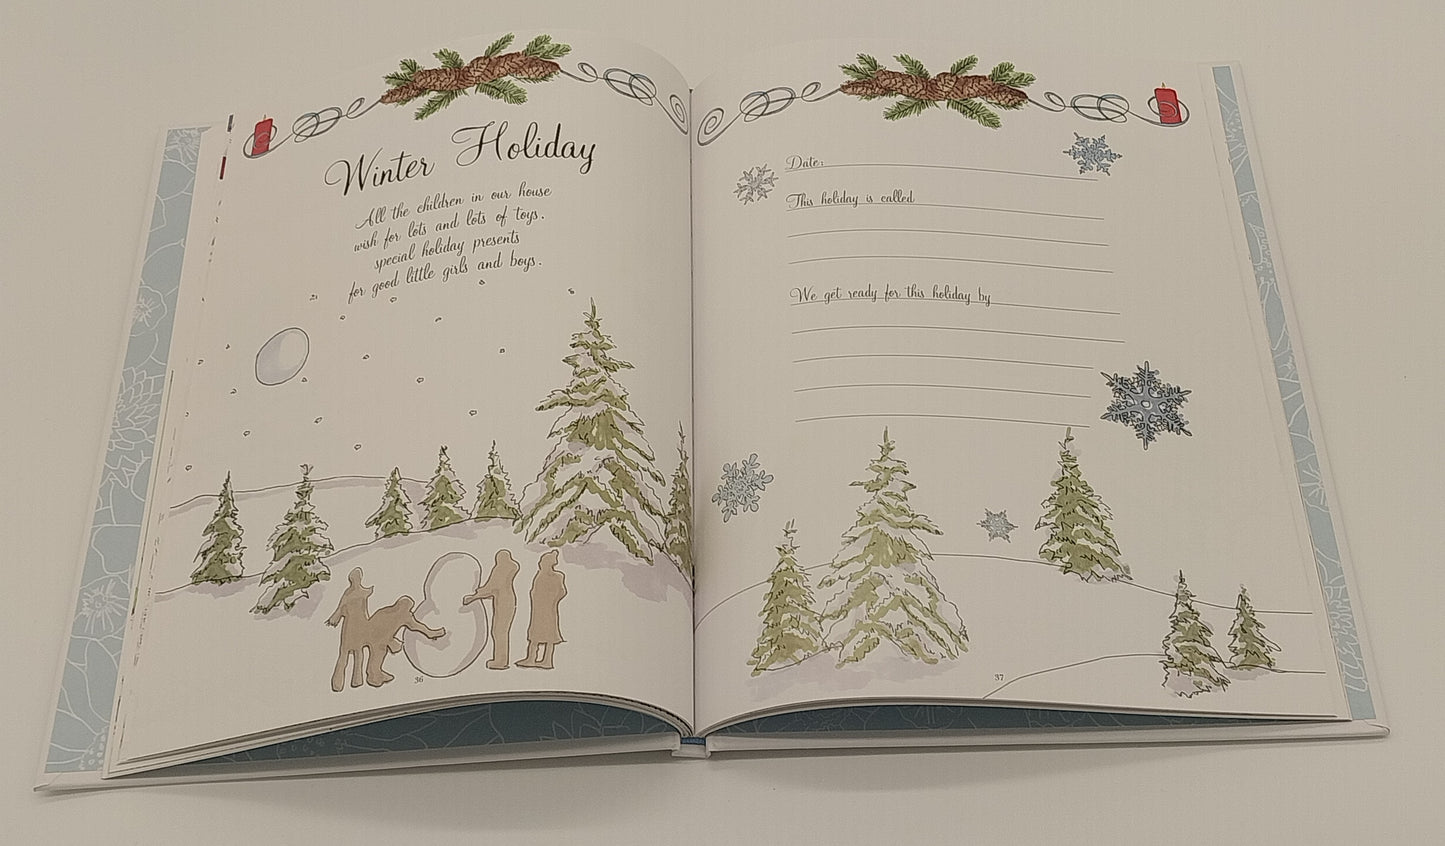 Winter Holiday
All the children in our house
wish for lots and lots of toys.
special holiday presents
for good little girls and boys.
36
Date:
This holiday is called
We get ready for this holiday by
37